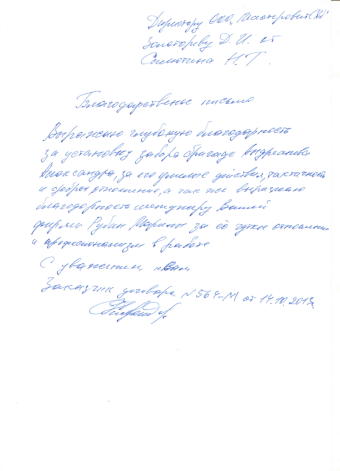 Директору ООО
Золотореву Д. И. от
Симотина Н. Г.
Благодарственное письмо
Выражаю глубокую благодарность
за установку забора бригаде Андрианова
Александра, за его умелые действия, тактичность
и доброе отношение, а так же выражаю
благодарность менеджеру вашей
фирмы Рубан Марине за её чуткое отношение
и профессионализм в работе
С уважением, к Вам
Заказчик договора № 564-М от 14.10.2013г.